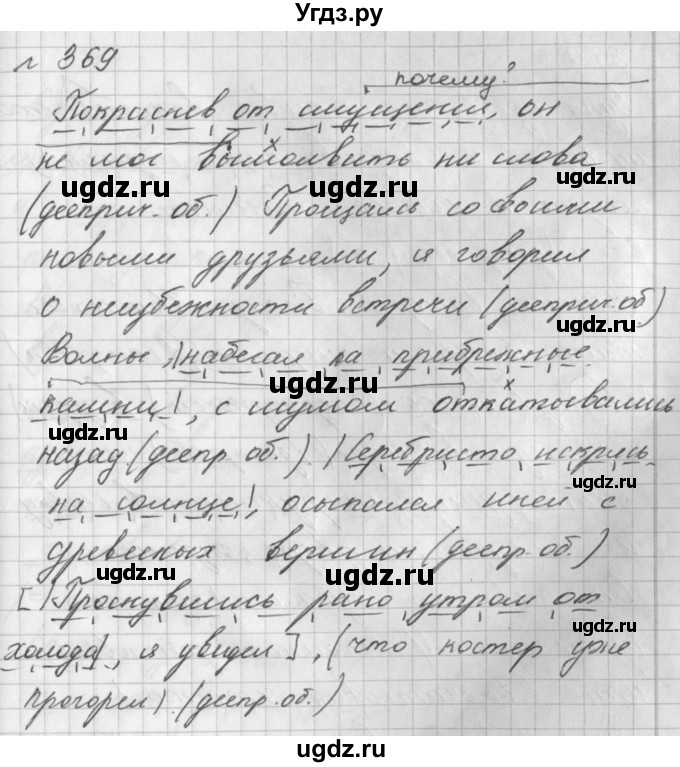 Угдз.ру
г 369
почему?
Покраснев от смущения, он
не мог вымолвить ни слова
ugdz.ru ugdz.ru
(дееприч. об.) Прощаясь со своими
новыми друзьями, я говорил
о неизбежности встречи (дееприч. об)
Волны, |набегая на прибрежные
ugdz.ru
камни|, с шумом откатывались
ugdz.ru ugdz.ru
назад (деепр. об.). |Серебристо искрясь
на солнце|, осыпался иней с
древесных вершин (деепр. об.)
ugdz.ru ugdz.ru
[|Проснувшись рано утром от
холода|, я увидел], (что костер уже
ugdz.ru ugdz.ru
прогорел). (деепр. об.)
ugdz.ru